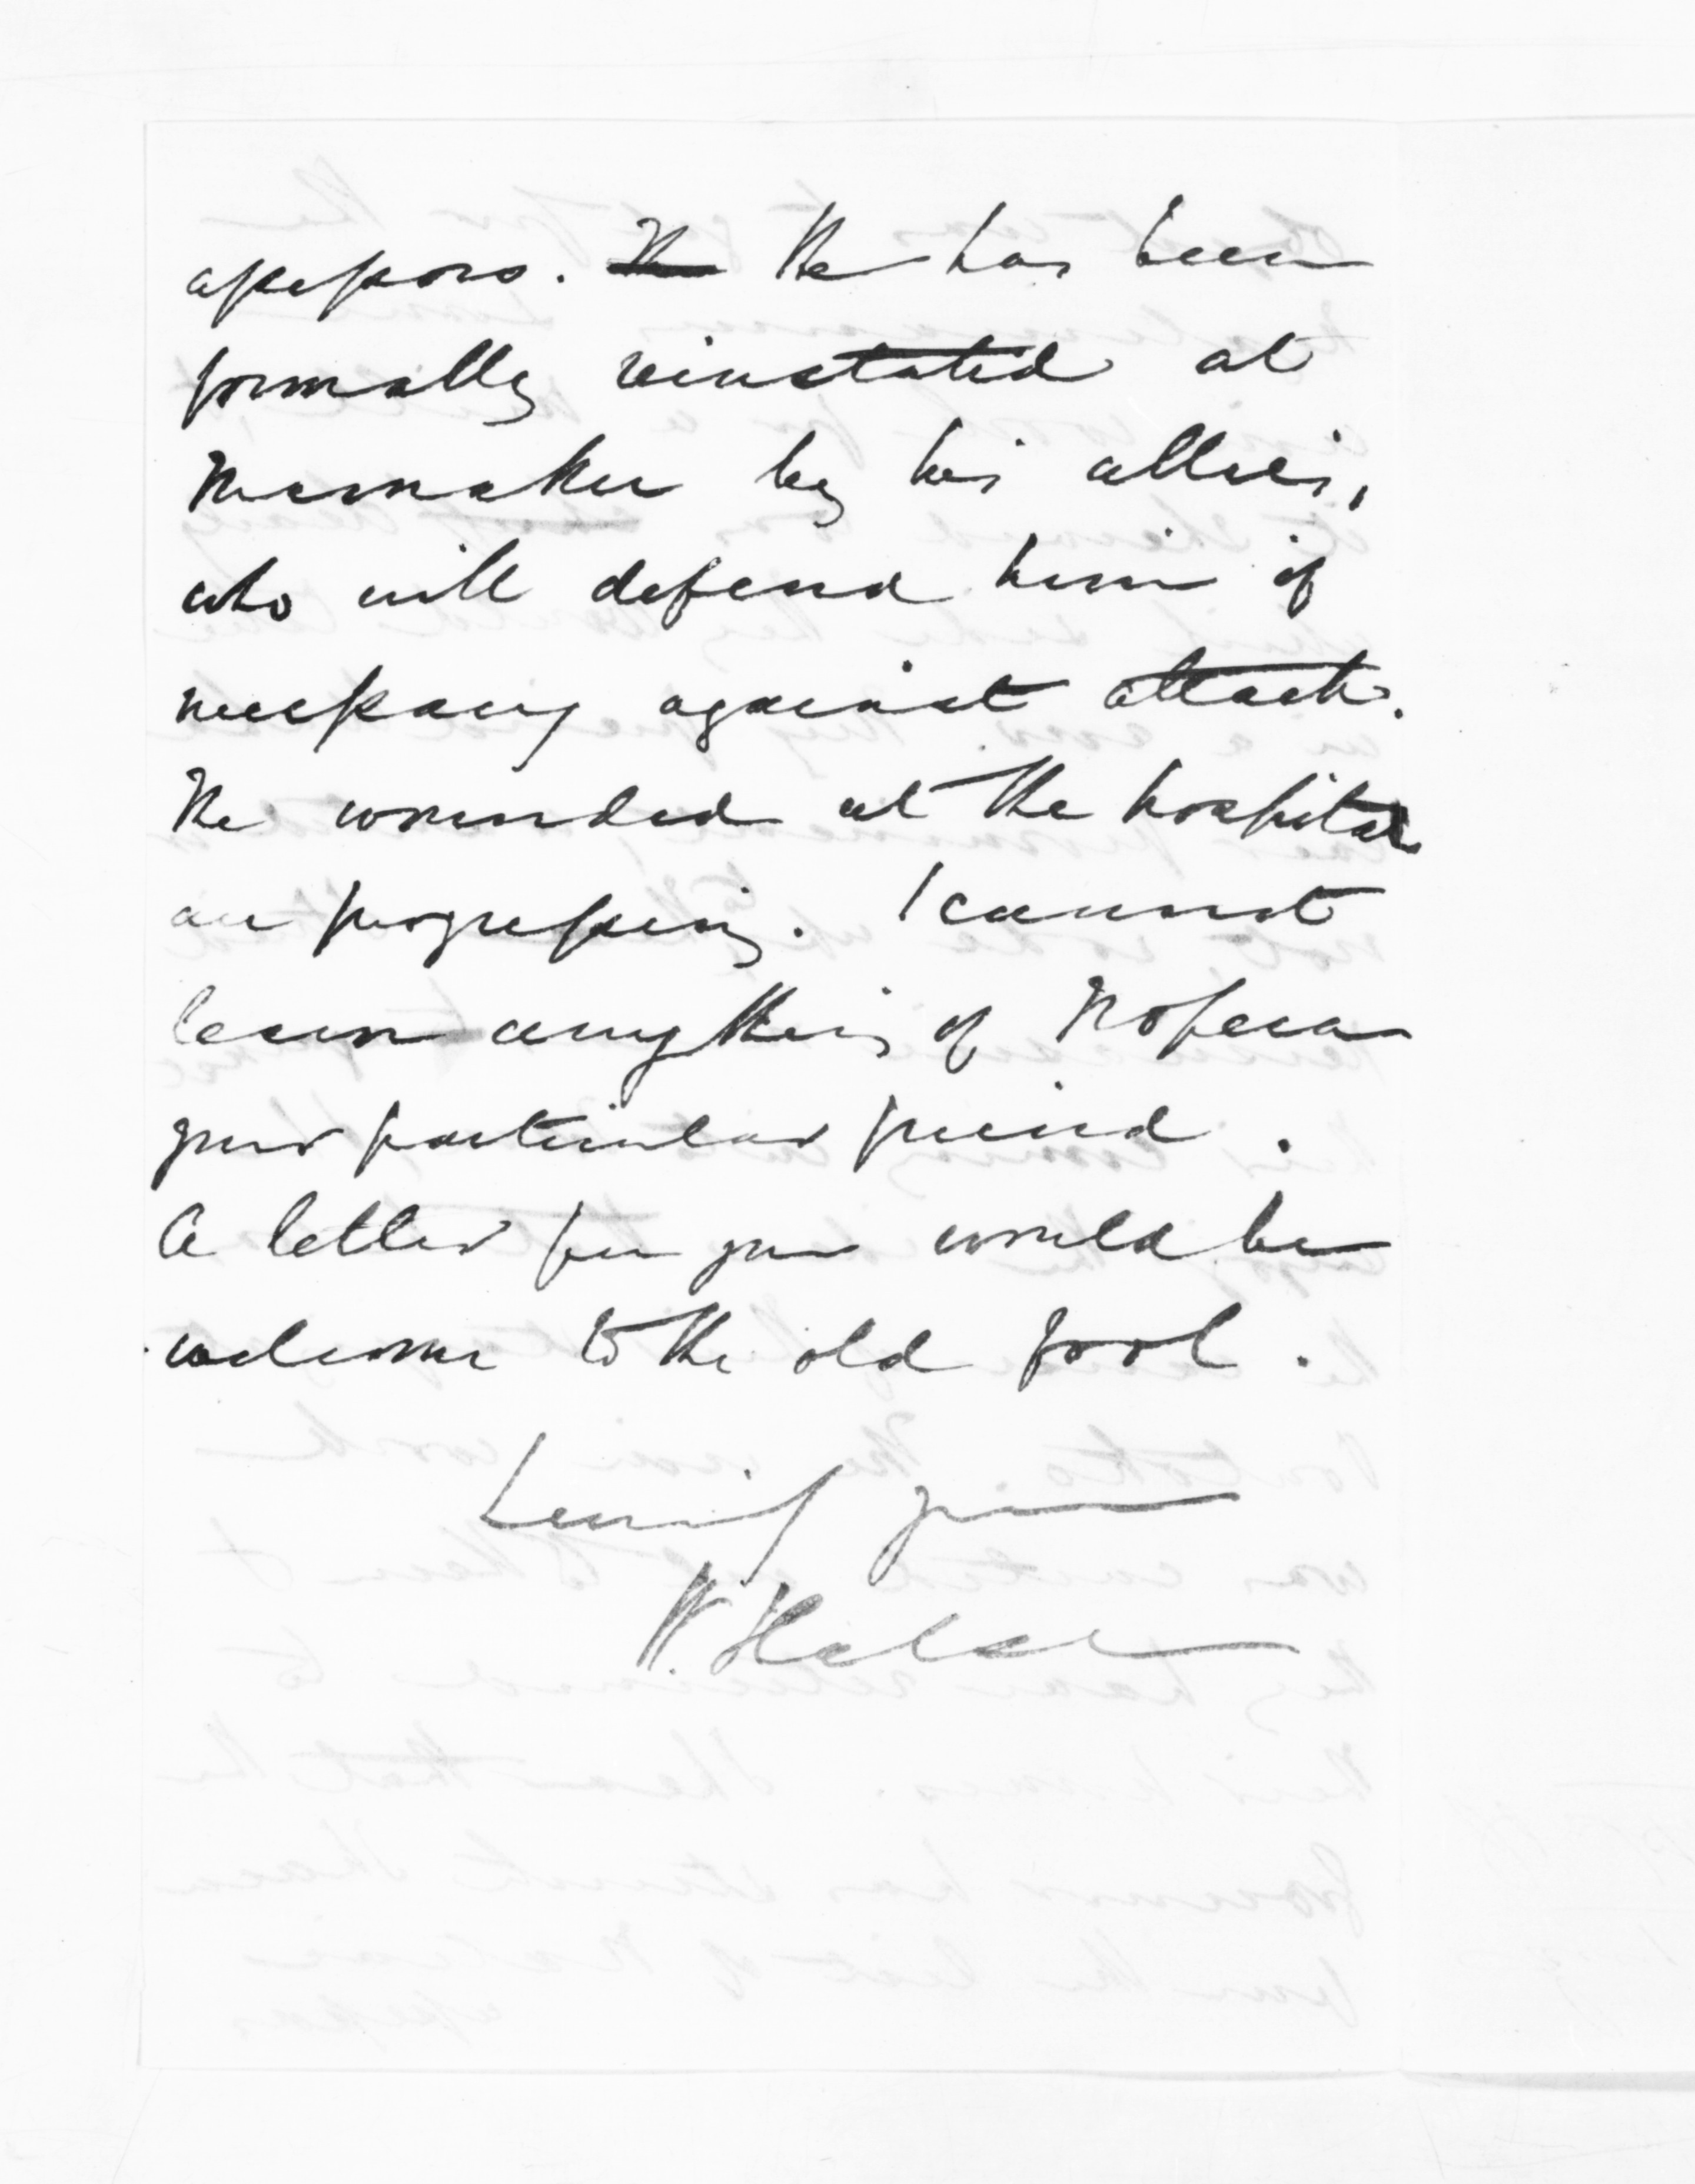 assessors. The He has been
formally reinstated at
by his allies,
who will defend him if
necessary against attack.
The wounded at the hospital
are progressing. I cannot
learn anything of Ropiha
your particular friend.
A letter from you would be
welcome to the old fool.
Sincerely yours
W. Halse